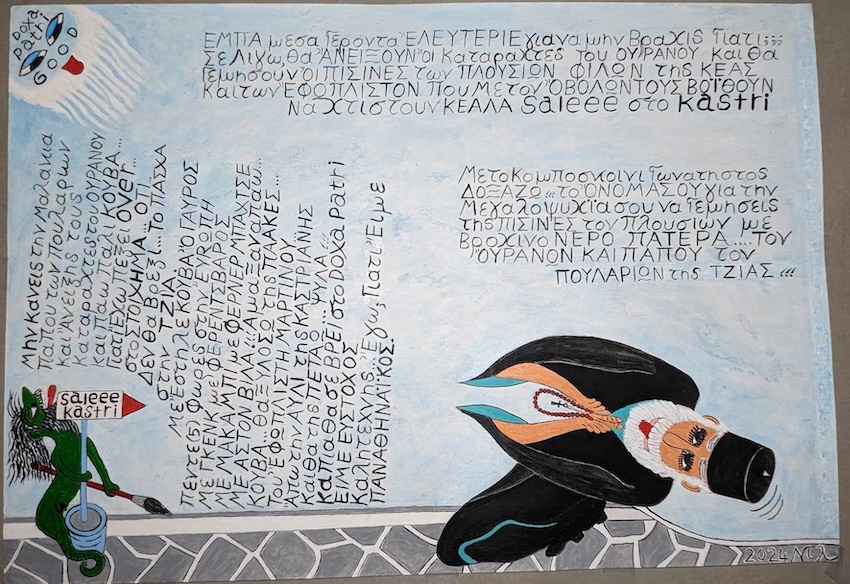 DOXA
Patri
GOOD
ΕΜΠΑ μεσα Γεροντα ΕΛΕΥΤΕΡΙΕ για να μην Βραχις Γιατι;;;
Σε Λιγω, θα ΑΝΕΙΞΟΥΝ ΟΙ Καταραχτες του ΟΥΡΑΝΟΥ και θα
Γεμησουν ΟΙ ΠΙΣΙΝΕΣ των ΠΛΟΥΣΙΩΝ ΦΙΛΩΝ της ΚΕΑΣ
και των ΕΦΟΠΛΙΣΤΟΝ που με τον ΟΒΟΛΩΝΤΟΥΣ ΒΟΪΘΟΥΝ
Να χτιστουν ΚΕΑΛΑ saleee στο kastri
Με το Κομποσκοινι Γωνατηστος
ΔΟΞΑΖΩ... το ΟΝΟΜΑ ΣΟΥ για την
Μεγαλοψυχϊα σου να Γεμησεις
της ΠΙΣΙΝΕΣ των Πλουσιων με
Βροχινο ΝΕΡΟ ΠΑΤΕΡΑ.... ΤΟΝ
ΟΥΡΑΝΩΝ ΚΑΙ ΠΑΠΟΥ τον
ΠΟΥΛΑΡΙΩΝ της ΤΖΙΑΣ...
Μην κανεις την Μαλακια
Παπου των Πουλαριων
Και Ανειξης τους
Καταραχτες του ΟΥΡΑΝΟΥ
Και Παω Παλι ΚΟΥΒΑ...
Γιατι Εχω Πεξει over...
στο ΣΤΟΙΧΗΜΑ ΟΤΙ
Δεν θα Βρεξι... Το ΠΑΣΧΑ
στην ΤΖΙΑ
Με Εστηλε ΚΟΥΒΑ Ο ΓΑΥΡΟΣ
πεντε(5) Φωρες στην ΕΥΡΩΠΗ
ΜΕ ΓΚΕΝΚ με ΦΕΡΕΝΤΣΒΑΡΟΣ
ΜΕ ΜΑΚΑΜΠΙ με ΦΕΡΝΕΡ ΜΠΑΧΤΣΕ
ΜΕ ΑΣΤΟΝ ΒΙΛΑ... Αμα Ξαναπαω...
ΚΟΥΒΑ... ΘΑ ΞΙΛΟΣΟ της ΠΛΑΚΕΣ...
Του ΕΦΟΠΛΙΣΤΗ ΜΑΡΤΙΝΟΥ
Απω την ΑΥΛΙ της ΚΑΣΤΡΙΑΝΗΣ
Και θα της ΠΕΤΑΩ ΨΥΛΑ...
Καπια θα σε ΒΡΕΪ στο DOXA Patri
ΕΙΜΕ ΕΥΣΤΟΧΟΣ
Καλητεχνης Εγω, Γιατι Ειμε
ΠΑΝΑΘΗΝΑΪΚΟΣ
saleee
kastri
2024